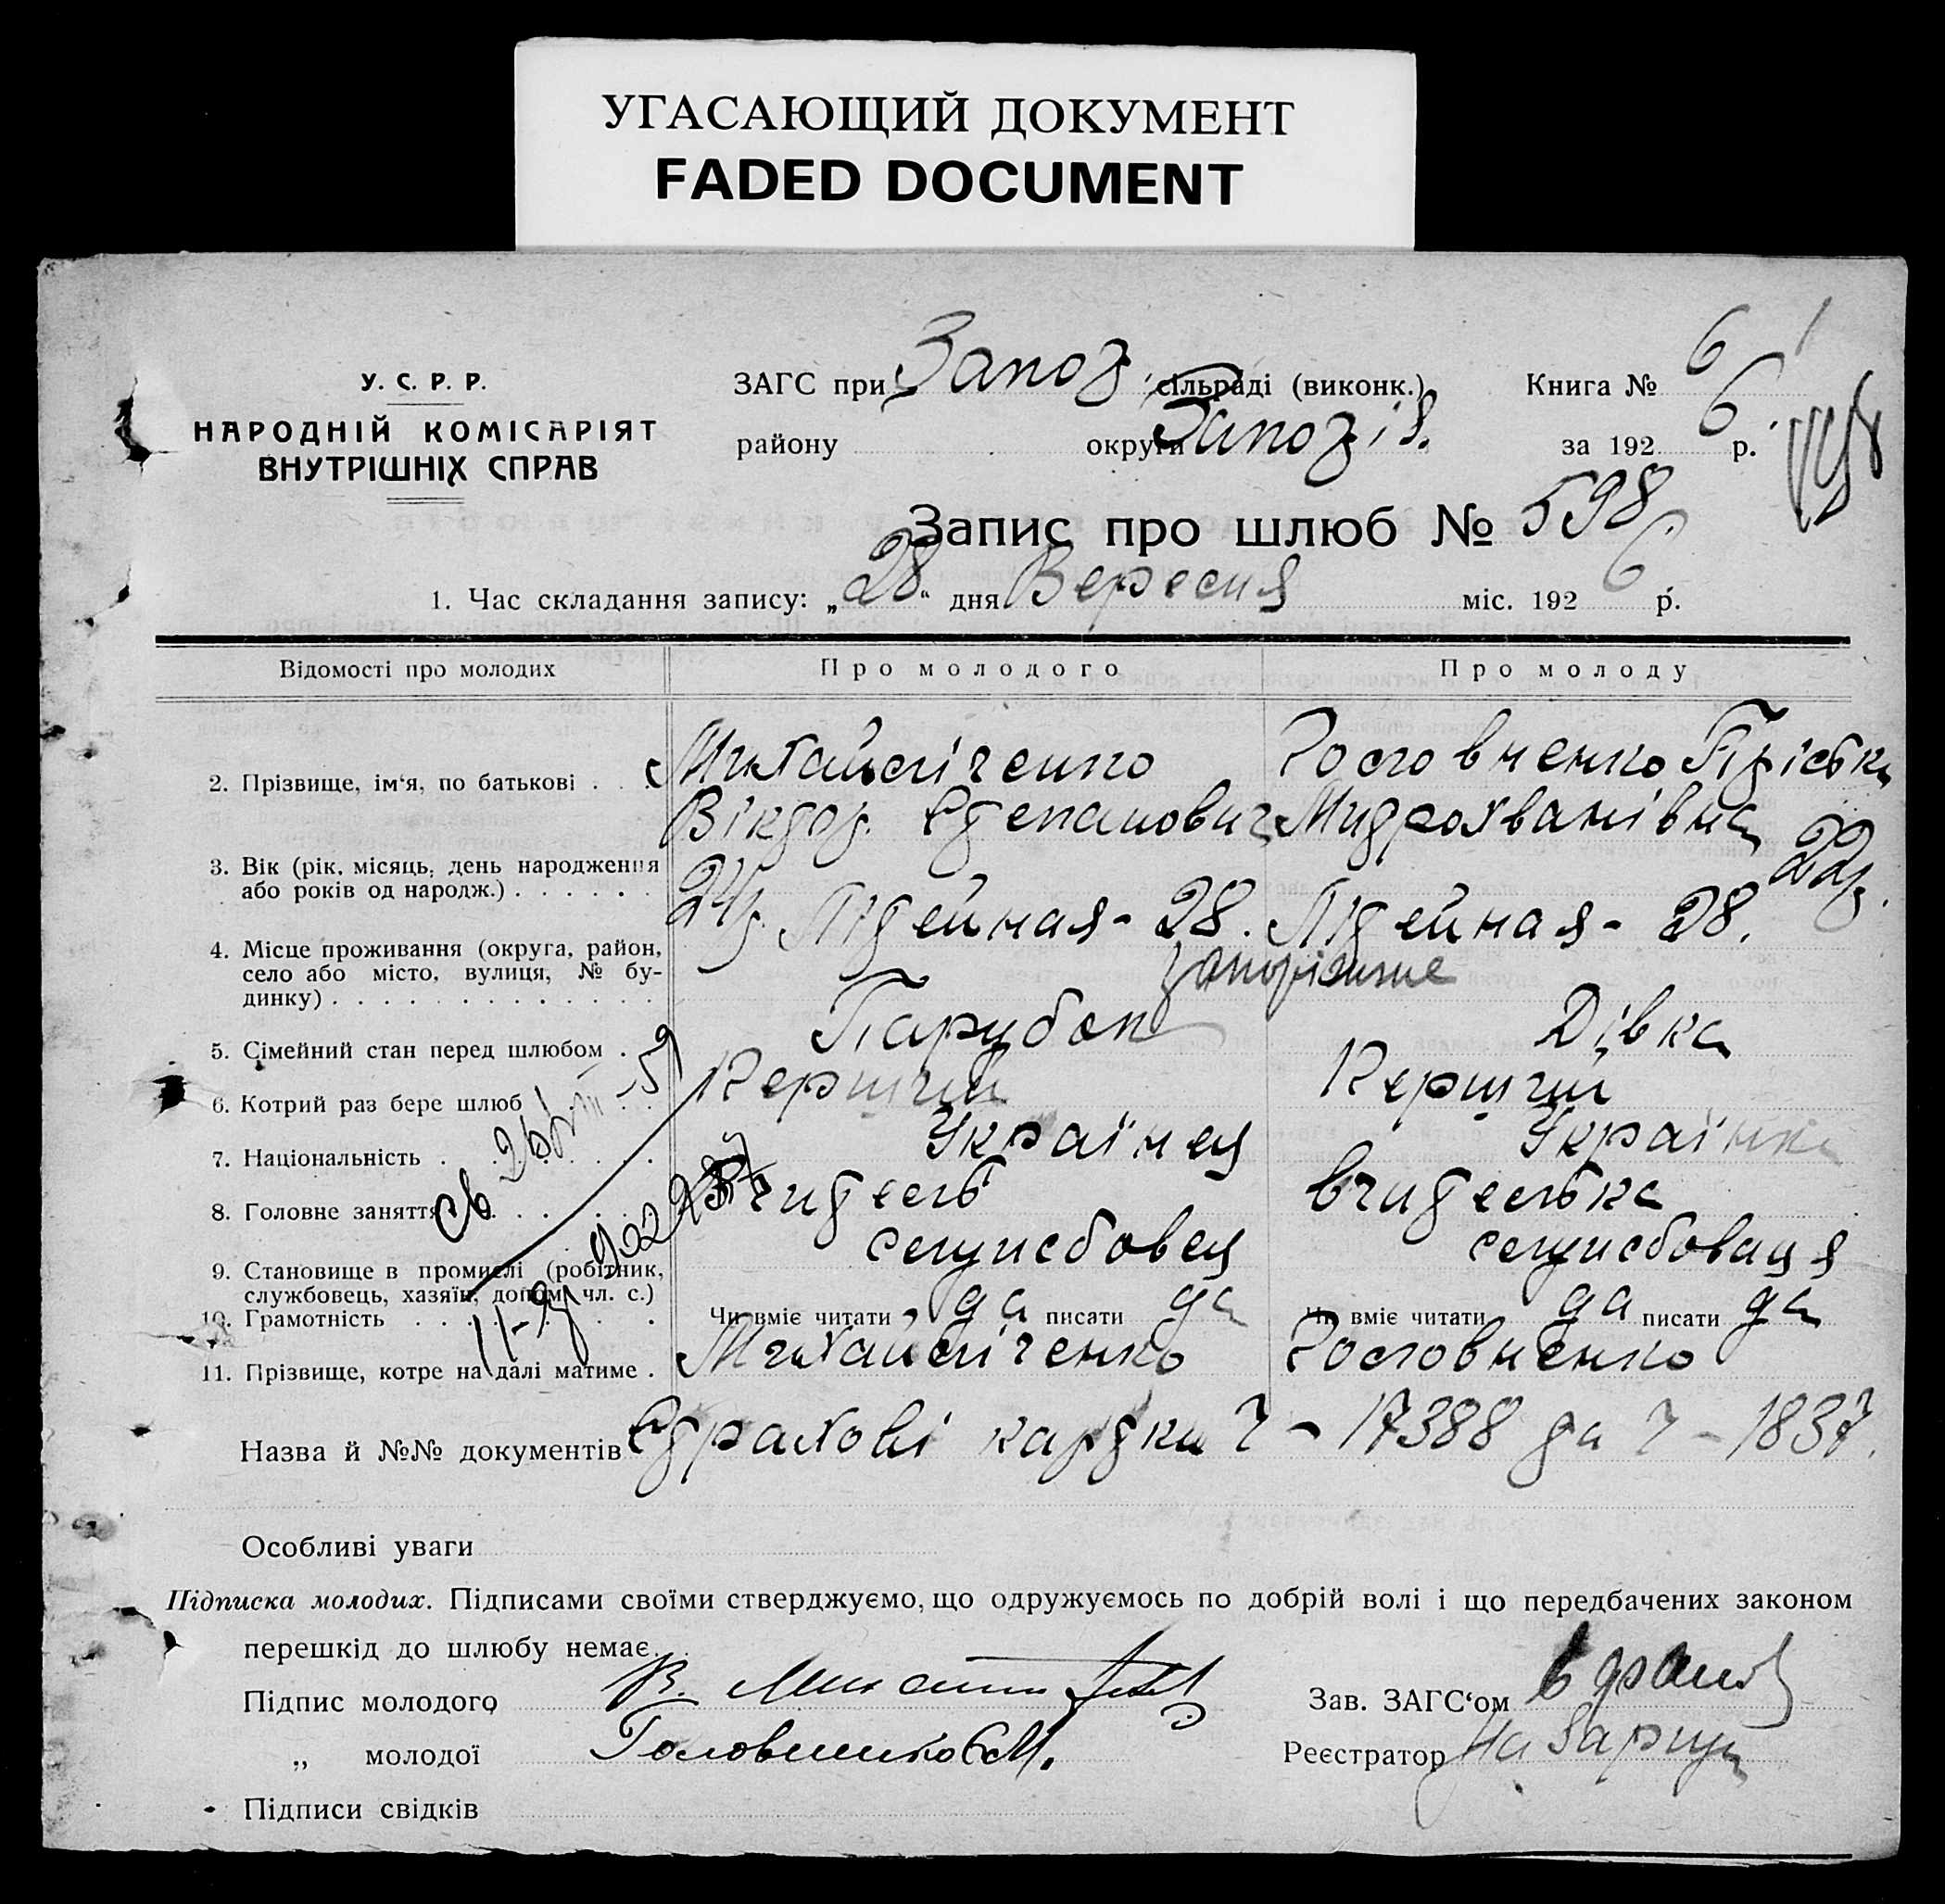 УГАСАЮЩИЙ ДОКУМЕНТ
FADED DOCUMENT
У. С. Р. Р.
НАРОДНІЙ КОМІСАРІЯТ
ВНУТРІШНІХ СПРАВ
ЗАГС при Запоз. сільраді (виконк.)
району округи Запозіз.
Книга № 6
за 192 6 р.
Запис про шлюб № 598
1. Час складання запису: „28“ дня Вересня міс. 192 6 р.
Відомості про молодих Про молодого Про молоду
2. Прізвище, ім‘я, по батькові . . . Михайліченко Головненко Пріська
Віктор Степанович Митрохванівна
3. Вік (рік, місяць, день народження
або років од народж.) . . . . . . 24р. 22р.
4. Місце проживання (округа, район,
село або місто, вулиця, № бу-
динку) . . . . . . . . . . . . . Літейная - 28. Літейная - 28.
Запоріжже
5. Сімейний стан перед шлюбом . . Парубок Дівка
6. Котрий раз бере шлюб . . . . Перший Перший
7. Національність . . . . . . . . Українец Українка
8. Головне заняття . . . . . . . Вчитель Вчителька
9. Становище в промислі (робітник,
службовець, хазяїн, допом. чл. с.) служсбовец служсбоваця
10. Грамотність . . . . . . . . Чи вміє читати да писати да Чи вміє читати да писати да
11. Прізвище, котре на далі матиме . Михайліченко Головненко
Назва й №№ документів Страхові картки Ч - 17388 та Ч - 1837.
Особливі уваги
Підписка молодих. Підписами своїми стверджуємо, що одружуємось по добрій волі і що передбачених законом
перешкід до шлюбу немає.
Підпис молодого В.
Зав. ЗАГС‘ом
„ молодої Головненко Є.М.
Реєстратор
Підписи свідків